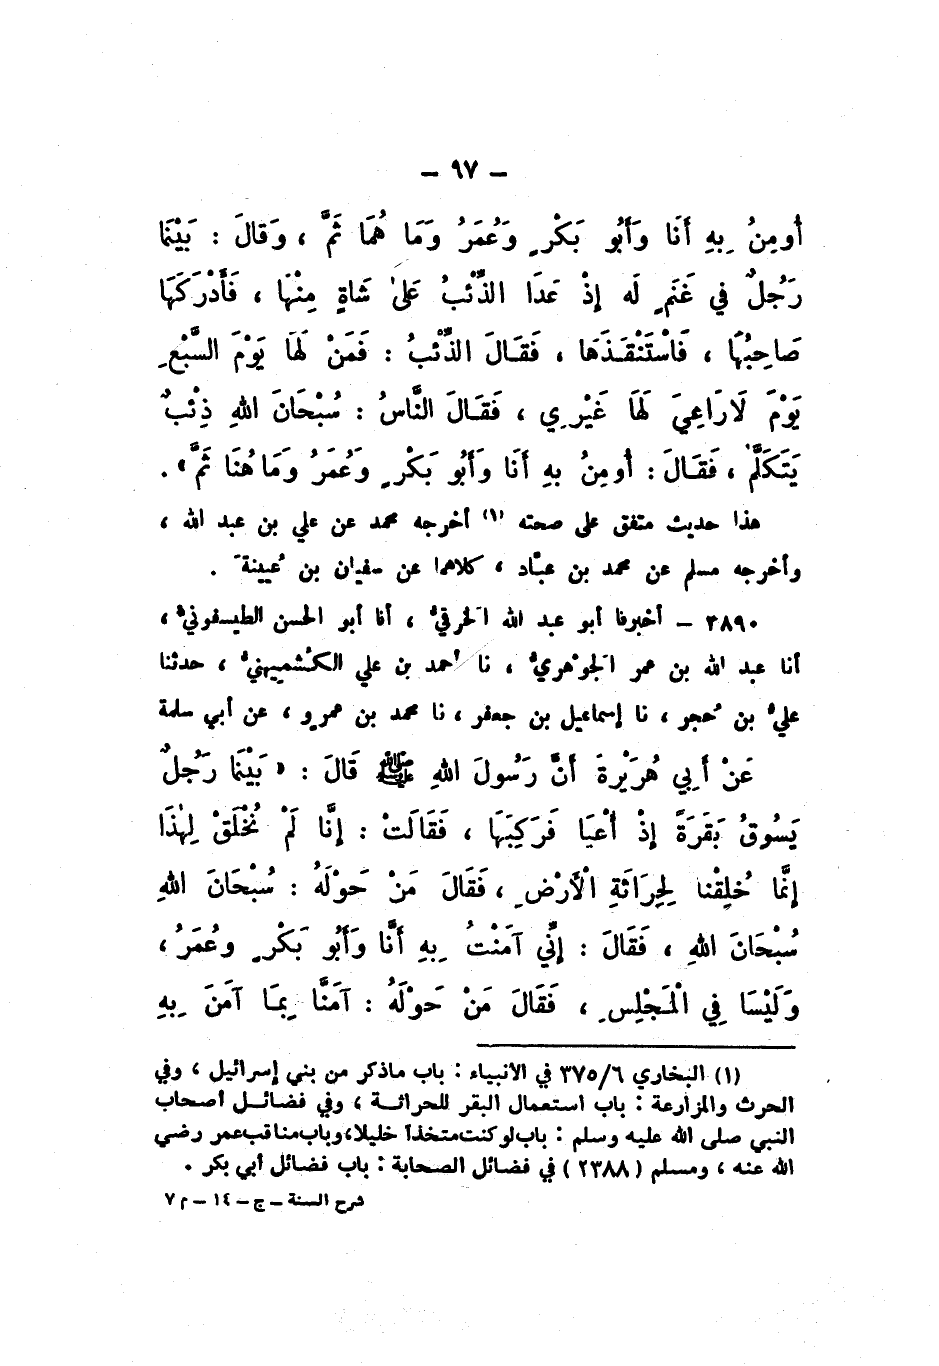 – ٩٧ –
أُومِنُ بِهِ أَنَا وَأَبُو بَكْرٍ وَعُمَرُ وَمَا هُمَا ثَمَّ ، وَقَالَ : بَيْنَمَا
رَجُلٌ فِي غَنَمٍ لَه إِذْ عَدَا الذِّئْبُ عَلَى شَاةٍ مِنْهَا ، فَأَدْرَكَهَا
صَاحِبُهَا ، فَاسْتَنْقَذَهَا ، فَقَالَ الذِّئْبُ : فَمَنْ لَهَا يَوْمَ السَّبْعِ
يَوْمَ لَارَاعِيَ لَهَا غَيْرِي ، فَقَالَ النَّاسُ : سُبْحَانَ اللهِ ذِئْبٌ
يَتَكَلَّمُ ، فَقَالَ : أُومِنُ بِهِ أَنَا وَأَبُو بَكْرٍ وَعُمَرُ وَمَا هُنَا ثَمَّ » .
هذا حديث متفق على صحته (١) أخرجه محمد عن علي بن عبد الله ،
وأخرجه مسلم عن محمد بن عبّاد ، كلاهما عن سفيان بن عُيينةَ .
٣٨٩٠ – أخبرنا أبو عبد الله الخَرقيُّ ، أنا أبو الحسن الطيسفونيُّ ،
أنا عبد الله بن عمر الجَوْهريُّ ، نا أحمد بن علي الكُشْمِيهنيُّ ، حدثنا
عليُّ بن حُجر ، نا إسماعيل بن جعفر ، نا محمد بن عمرو ، عن أبي سلمة
عَنْ أَبِي هُرَيْرةَ أَنَّ رَسُولَ اللهِ ﷺ قَالَ : « بَيْنَمَا رَجُلٌ
يَسُوقُ بَقَرَةً إِذْ أَعْيَا فَرَكِبَهَا ، فَقَالَتْ : إِنَّا لَمْ نُخْلَقْ لِهٰذَا
إِنَّمَا خُلِقْنا لِحِرَاثَةِ الْأَرْضِ ، فَقَالَ مَنْ حَوْلَهُ : سُبْحَانَ اللهِ
سُبْحَانَ اللهِ ، فَقَالَ : إِنِّي آمَنْتُ بِهِ أَنَا وَأَبُو بَكْرٍ وعُمَرُ ،
وَلَيْسَا فِي الْمَجْلِسِ ، فَقَالَ مَنْ حَوْلَهُ : آمَنَّا بِمَا آمَنَ بِهِ
(١) البخاري ٣٧٥/٦ في الأنبياء : باب ماذكر من بني إسرائيل ، وفي
الحرث والمزارعة : باب استعمال البقر للحراثة ، وفي فضائل أصحاب
النبي صلى الله عليه وسلم : باب لو كنت متخذاً خليلا، وباب مناقب عمر رضي
الله عنه ، ومسلم (٢٣٨٨) في فضائل الصحابة : باب فضائل أبي بكر .
شرح السنة – ج – ١٤ – م ٧